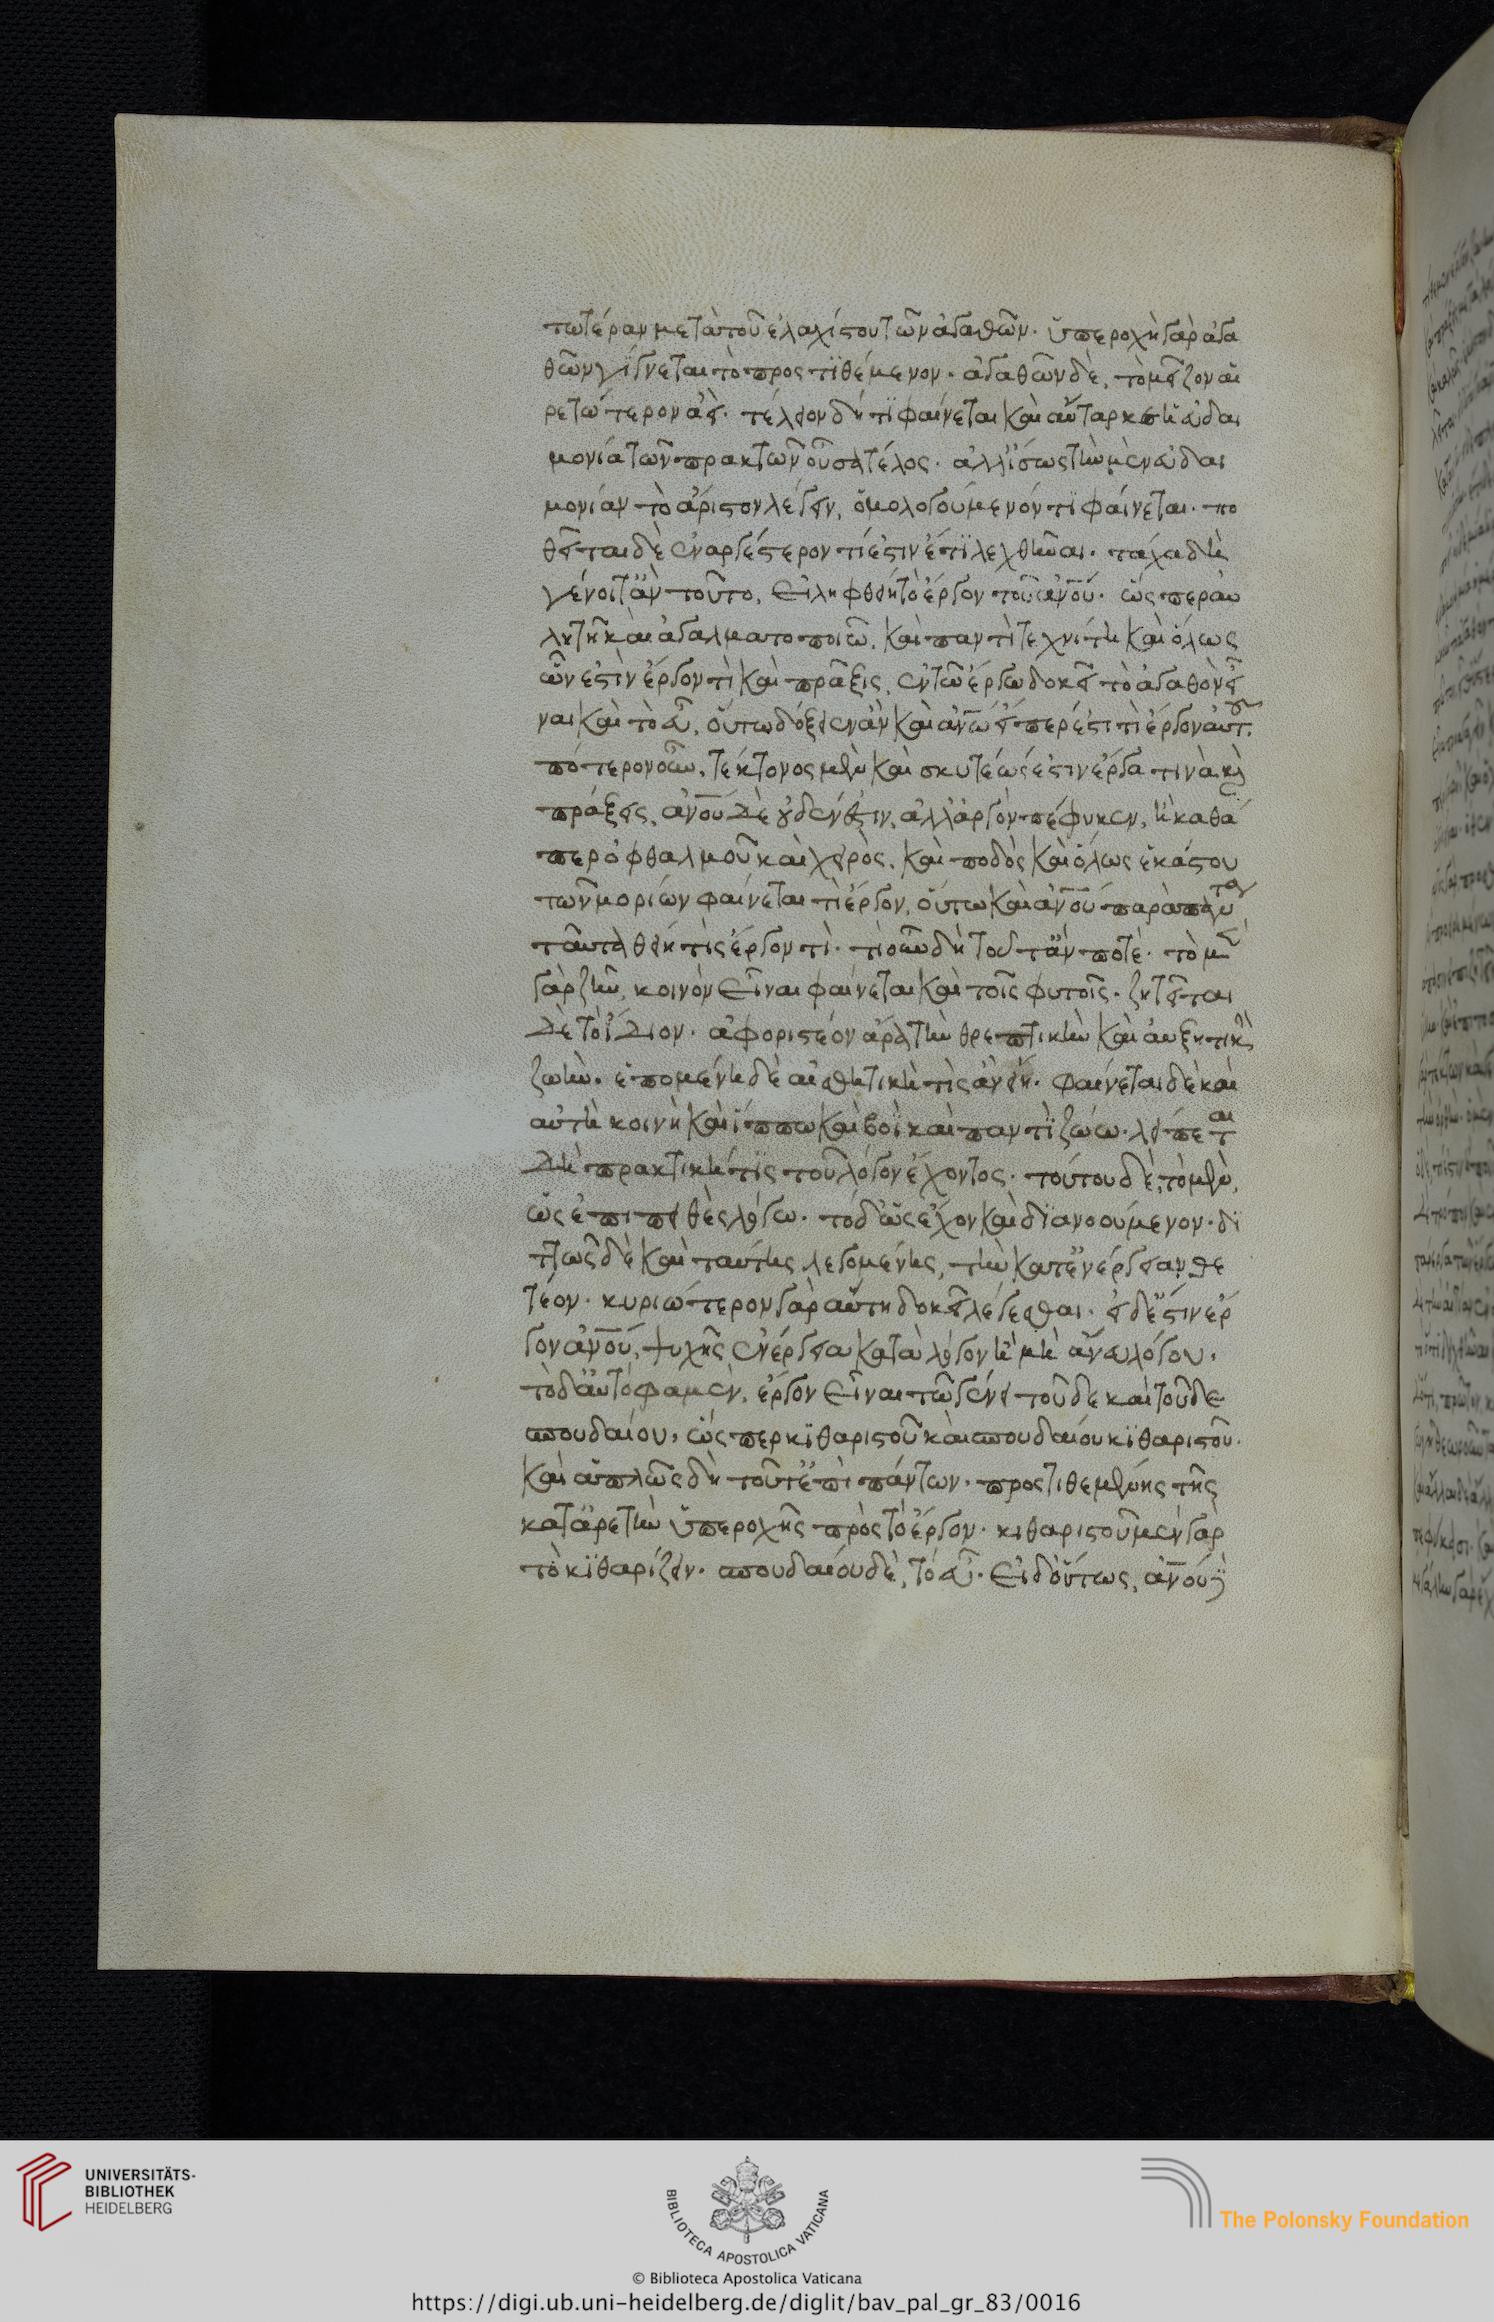 τωτέραν μετὰ τοῦ ἐλαχίστου τῶν ἀγαθῶν· ὑπεροχὴ γὰρ ἀγα
θῶν γίγνεται τὸ προστιθέμενον· ἀγαθῶν δὲ, τὸ μεῖζον αἱ
ρετώτερον ἀεί· τέλειον δή τι φαίνεται καὶ αὔταρκες ἡ εὐδαι
μονία τῶν πρακτῶν οὖσα τέλος· ἀλλ' ἴσως τὴν μὲν εὐδαι
μονίαν τὸ ἄριστον λέγειν, ὁμολογούμενόν τι φαίνεται· πο
θεῖται δὲ ἐναργέστερον τί ἐστιν ἔτι λεχθῆναι· τάχα δὴ
γένοιτ' ἂν τοῦτο, εἰ ληφθείη τὸ ἔργον τοῦ ἀνου· ὥσπερ αὐ
λητῆ καὶ ἀγαλματοποιῶ, καὶ παντὶ τεχνίτη καὶ ὅλως
ὧν ἐστὶν ἔργον τὶ καὶ πρᾶξις, ἐν τῶ ἔργω δοκεῖ τὸ ἀγαθὸν εἶ
ναι καὶ τὸ εὖ, οὕτω δόξειεν ἂν καὶ ἀνω εἴπερ ἔστι τὶ ἔργον αὐτοῦ.
πότερον οὖν, τέκτονος μὲν καὶ σκυτέως ἐστιν ἔργα τινὰ καὶ
πράξεις, ἀνου δὲ οὐδέν ἐστιν, ἀλλ' ἀργὸν πέφυκεν, ἢ καθά
περ ὀφθαλμοῦ καὶ χειρὸς, καὶ ποδὸς καὶ ὅλως ἑκάστου
τῶν μορίων φαίνεται τὶ ἔργον, οὕτω καὶ ἀνου παρὰ πάντα
ταῦτα θείη τὶς ἔργον τὶ· τί οὖν δὴ τοῦτ' ἂν ποτέ· τὸ μὲν
γὰρ ζῆν, κοινὸν εἶναι φαίνεται καὶ τοῖς φυτοῖς· ζητεῖται
δὲ τὸ ἴδιον· ἀφοριστέον ἄρα τὴν θρεπτικὴν καὶ αὐξητικὴν
ζωήν. ἑπομένη δὲ αἰσθητικὴ τὶς ἂν εἴη· φαίνεται δὲ καὶ
αὐτὴ κοινὴ καὶ ἵππω καὶ βοῒ καὶ παντὶ ζώω· λείπεται
δὴ πρακτική τις τοῦ λόγον ἔχοντος· τούτου δὲ, τὸ μὲν,
ὡς ἐπιπειθὲς λόγω· τὸ δ' ὡς ἔχον καὶ διανοούμενον· δι
ττῶς δὲ καὶ ταύτης λεγομένης, τὴν κατ' ἐνέργειαν θε
τέον· κυριώτερον γὰρ αὕτη δοκεῖ λέγεσθαι· εἰ δέ ἐστιν ἔρ
γον ἀνου, ψυχῆς ἐνέργεια κατὰ λόγον ἢ μὴ ἄνευ λόγου,
τὸ δ' αὐτό φαμεν, ἔργον εἶναι τῶ γένει τοῦδε καὶ τοῦδε
σπουδαίου, ὥσπερ κιθαριστοῦ καὶ σπουδαίου κιθαριστοῦ·
καὶ ἁπλῶς δὴ τοῦτ' ἐπὶ πάντων· προστιθεμένης τῆς
κατ' ἀρετὴν ὑπεροχῆς πρὸς τὸ ἔργον· κιθαριστοῦ μὲν γὰρ
τὸ κιθαρίζειν· σπουδαίου δὲ, τὸ εὖ· εἰ δ' οὕτως, ἀνου δὲ
UNIVERSITÄTS-
BIBLIOTHEK
HEIDELBERG
BIBLIOTECA APOSTOLICA VATICANA
The Polonsky Foundation
© Biblioteca Apostolica Vaticana
https://digi.ub.uni-heidelberg.de/diglit/bav_pal_gr_83/0016